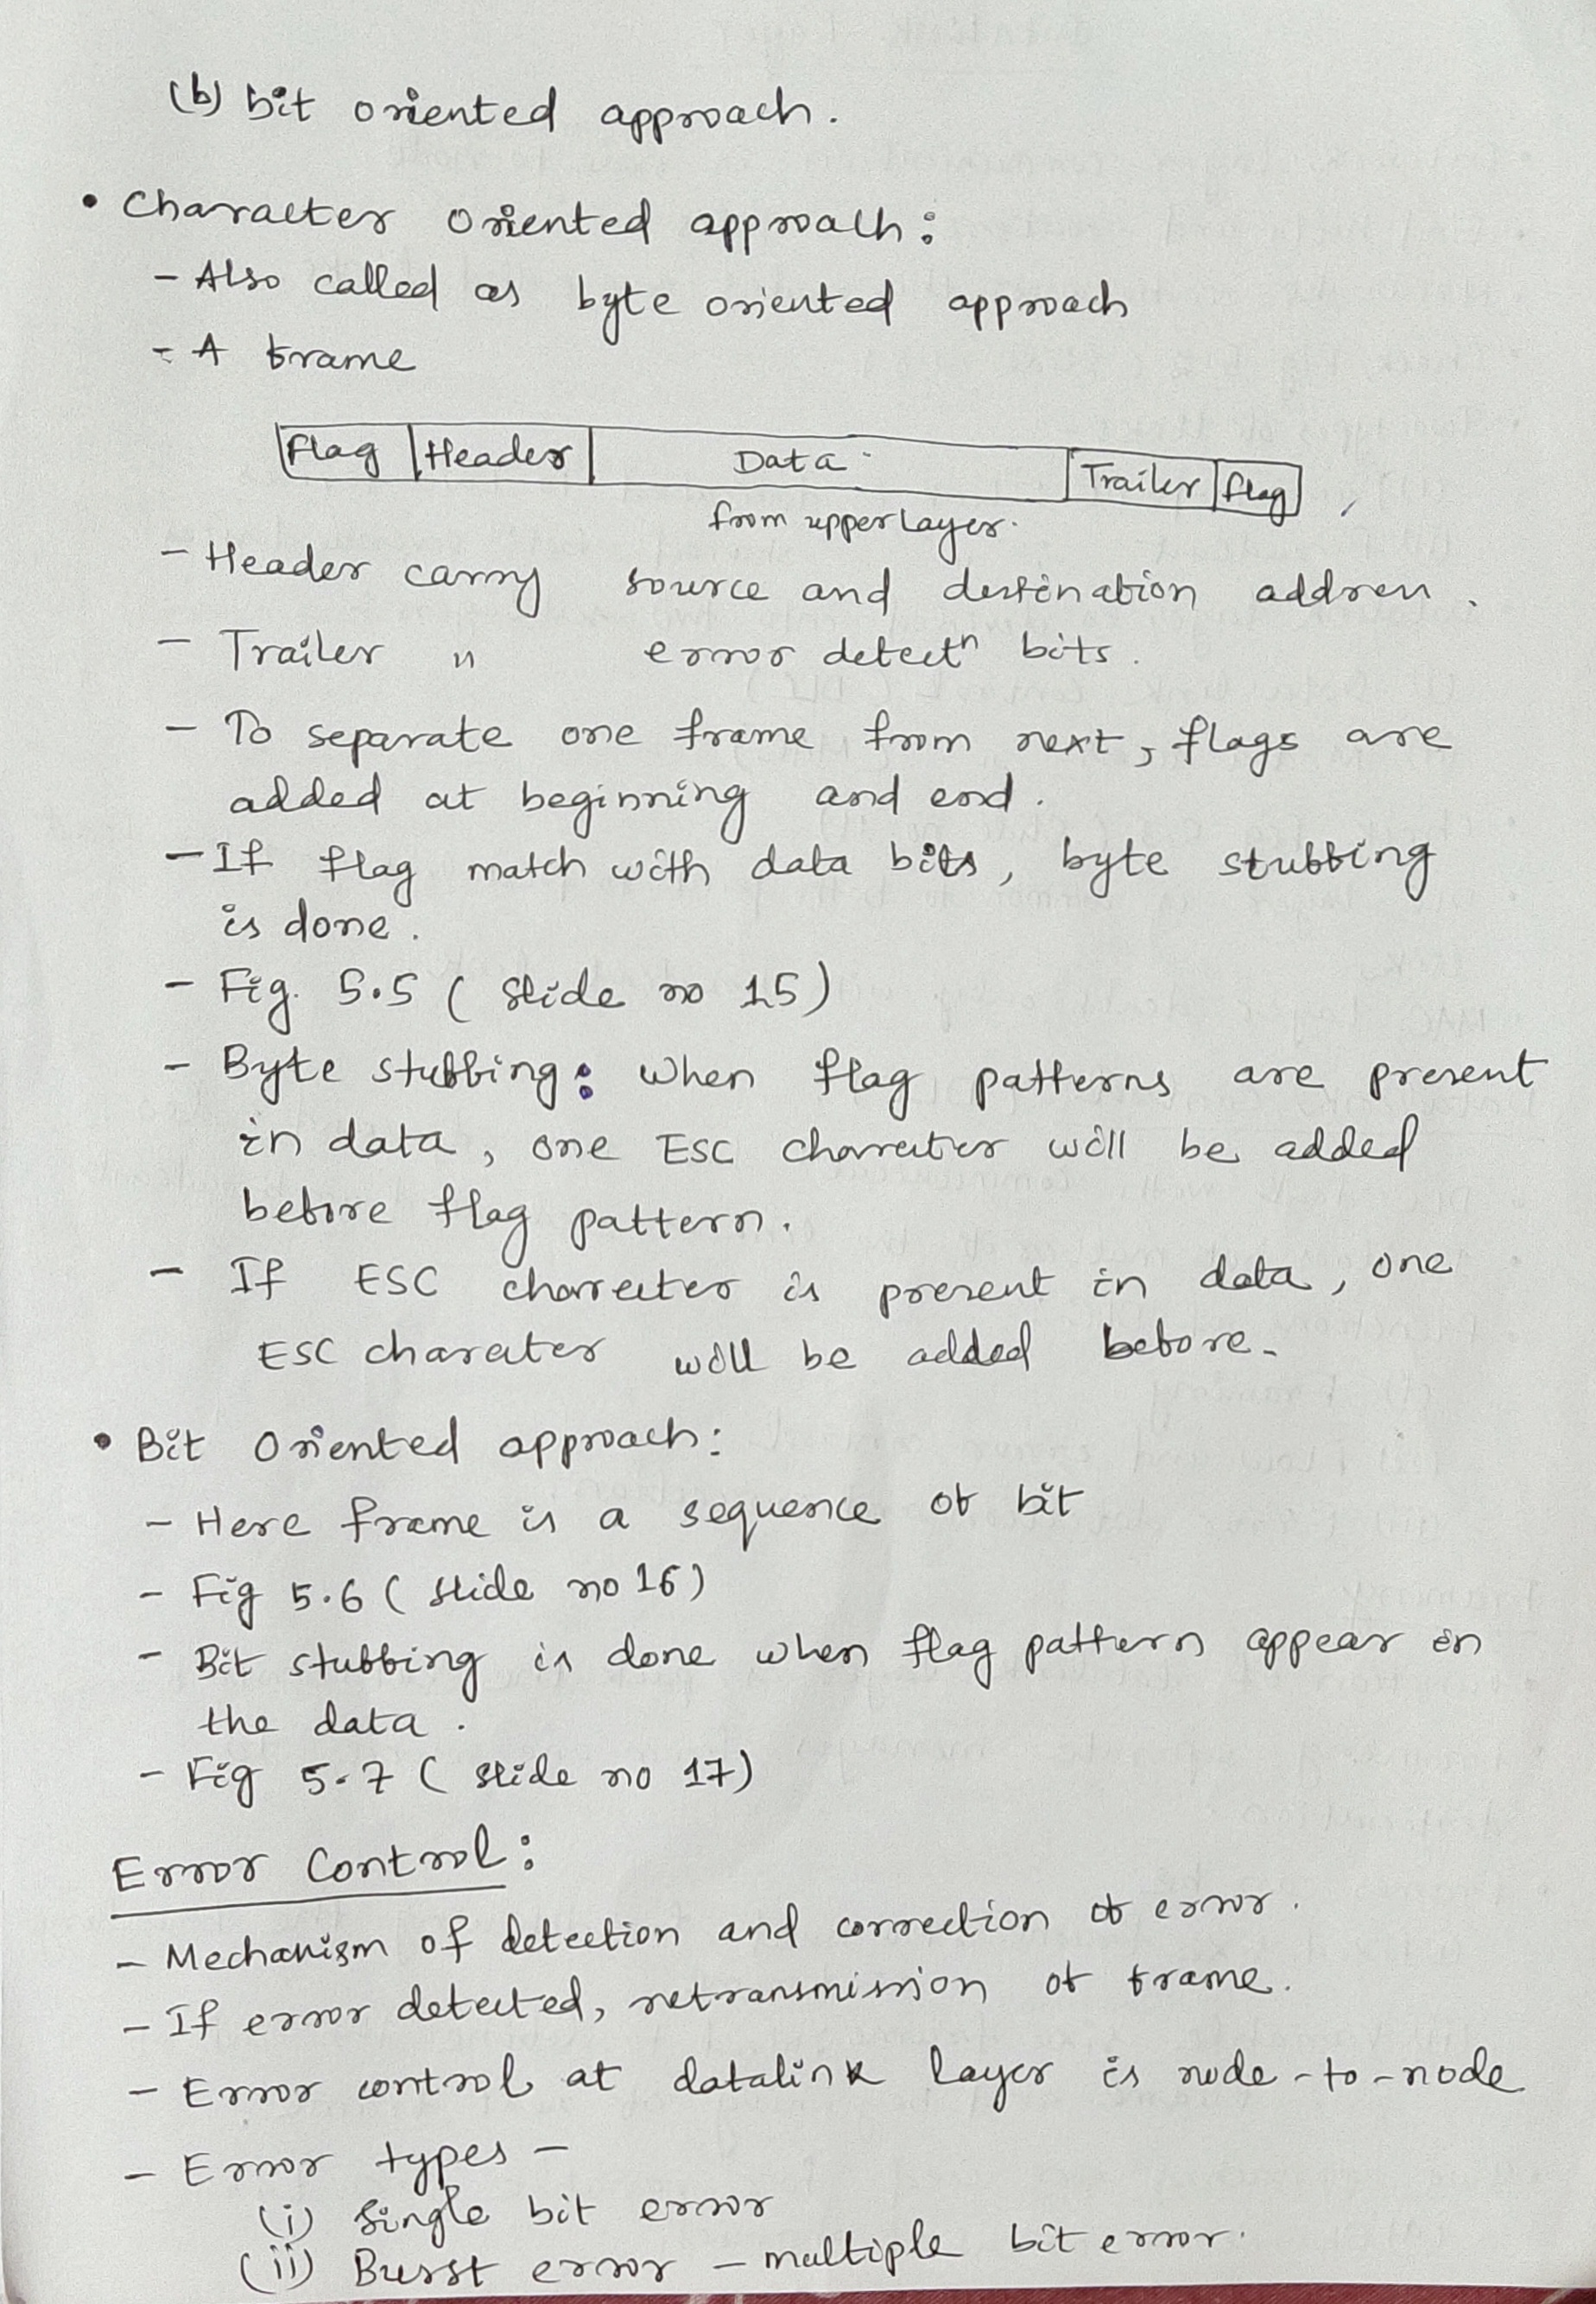 (b) bit oriented approach.
• Character oriented approach:
- Also called as byte oriented approach
- A frame
Flag Header Data Trailer flag
from upper layer.
- Header carry source and destination address.
- Trailer " error detectⁿ bits.
- To separate one frame from next, flags are
added at beginning and end.
- If flag match with data bits, byte stubbing
is done.
- Fig. 5.5 ( Slide no 15)
- Byte stubbing: When flag patterns are present
in data, one ESC character will be added
before flag pattern.
- If ESC character is present in data, one
ESC charater will be added before.
• Bit Oriented approach:
- Here frame is a sequence of bit
- Fig 5.6 ( slide no 16)
- Bit stubbing is done when flag pattern appear in
the data.
- Fig 5.7 ( slide no 17)
Error Control:
- Mechanism of detection and correction of error.
- If error detected, retransmission of frame.
- Error control at datalink layer is node-to-node
- Error types -
(i) Single bit error
(ii) Burst error - multiple bit error.